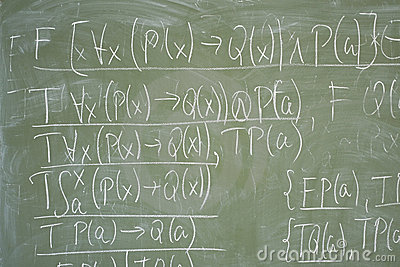 F [∀x (P(x) → Q(x)) ∧ P(a)] (
T ∀x (P(x) → Q(x)) ∧ P(a), F Q(
T ∀x (P(x) → Q(x)), T P(a)
T S x a (P(x) → Q(x)) {F P(a), T
T P(a) → Q(a) {T Q(a), T P(a)
dreamstime.com